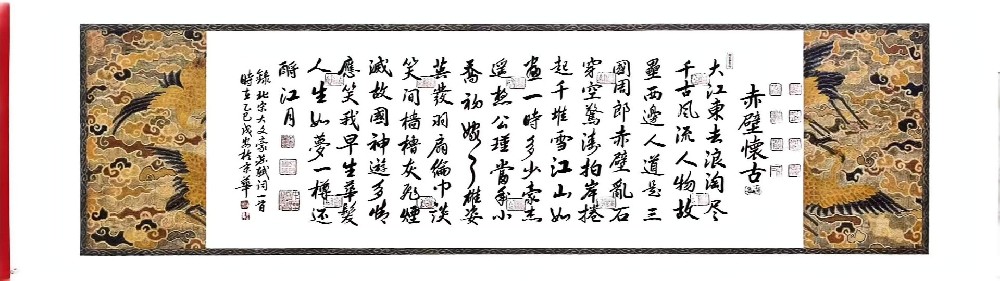 赤壁懷古
大江東去浪淘尽
千古風流人物故
壘西邊人道是三
國周郎赤壁亂石
穿空驚濤拍岸捲
起千堆雪江山如
畫一時多少豪杰
遥想公瑾當年小
喬初嫁了雄姿
英發羽扇綸巾談
笑间檣櫓灰飛煙
滅故國神遊多情
應笑我早生華髮
人生如夢一樽还
酹江月
錄北宋大文豪苏軾词一首
時在乙巳歲於京華